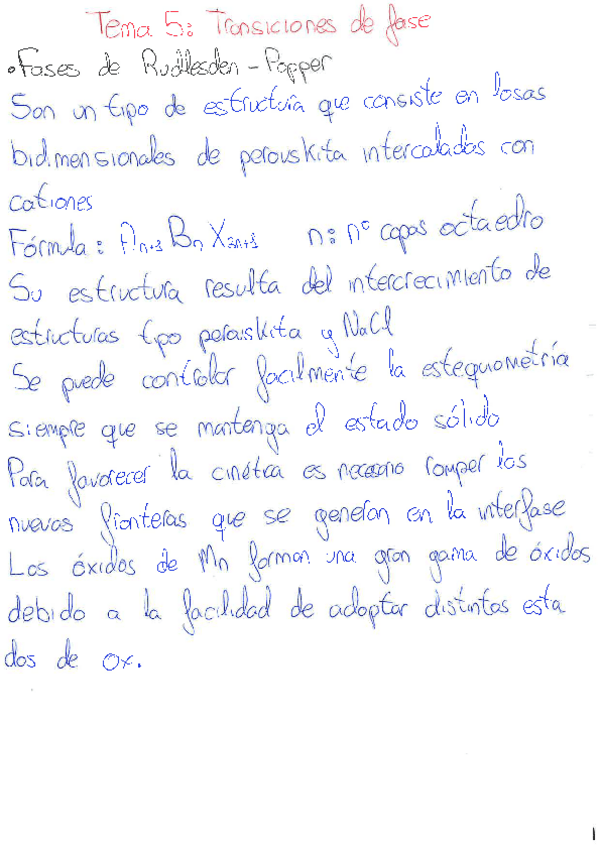 Tema 5: Transiciones de fase
•Fases de Rudlesden-Popper
Son un tipo de estructura que consiste en losas
bidimensionales de perovskita intercaladas con
cationes
Fórmula: Aₙ₊₁ Bₙ X₃ₙ₊₁ n: nº capas octaedro
Su estructura resulta del intercrecimiento de
estructuras tipo perovskita y NaCl
Se puede controlar facilmente la estequiometría
siempre que se mantenga el estado sólido
Para favorecer la cinética es necesario romper las
nuevas fronteras que se generan en la interfase
Los óxidos de Mn forman una gran gama de óxidos
debido a la facilidad de adoptar distintos esta
dos de ox.
1